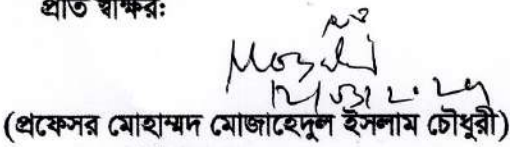 প্রতি স্বাক্ষর:
(প্রফেসর মোহাম্মদ মোজাহেদুল ইসলাম চৌধুরী)